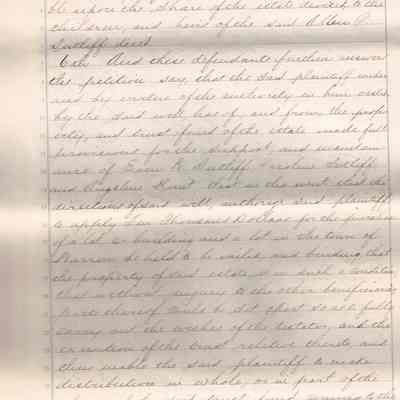 ble upon the share of the estate devised to the
children, and heirs of the said Allen P.
Sutliff decd.
And these defendants further answer
the petition say, that the said plaintiff under
and by virtue of the authority in him
by the said will has of, and from the prop-
erty, and trust funds of the estate made full
provisions for the support and mainten-
ance of K. Sutliff Sutliff
and Angeline That in the event that the
directions of said will, authorize said plaintiff
to apply Ten Thousand Dollars for the purchase
of a lot & building and a lot in the town of
Warren be held to be valid and binding, that
the property of said estate is in such a condition
that without injury to the other beneficiaries
parts thereof could be set apart so as to fully
carry out the wishes of the testator, and the
execution of the trust relative thereto, and
thus enable the said plaintiff to make
distribution in whole, or in part of the
trust fund coming to the